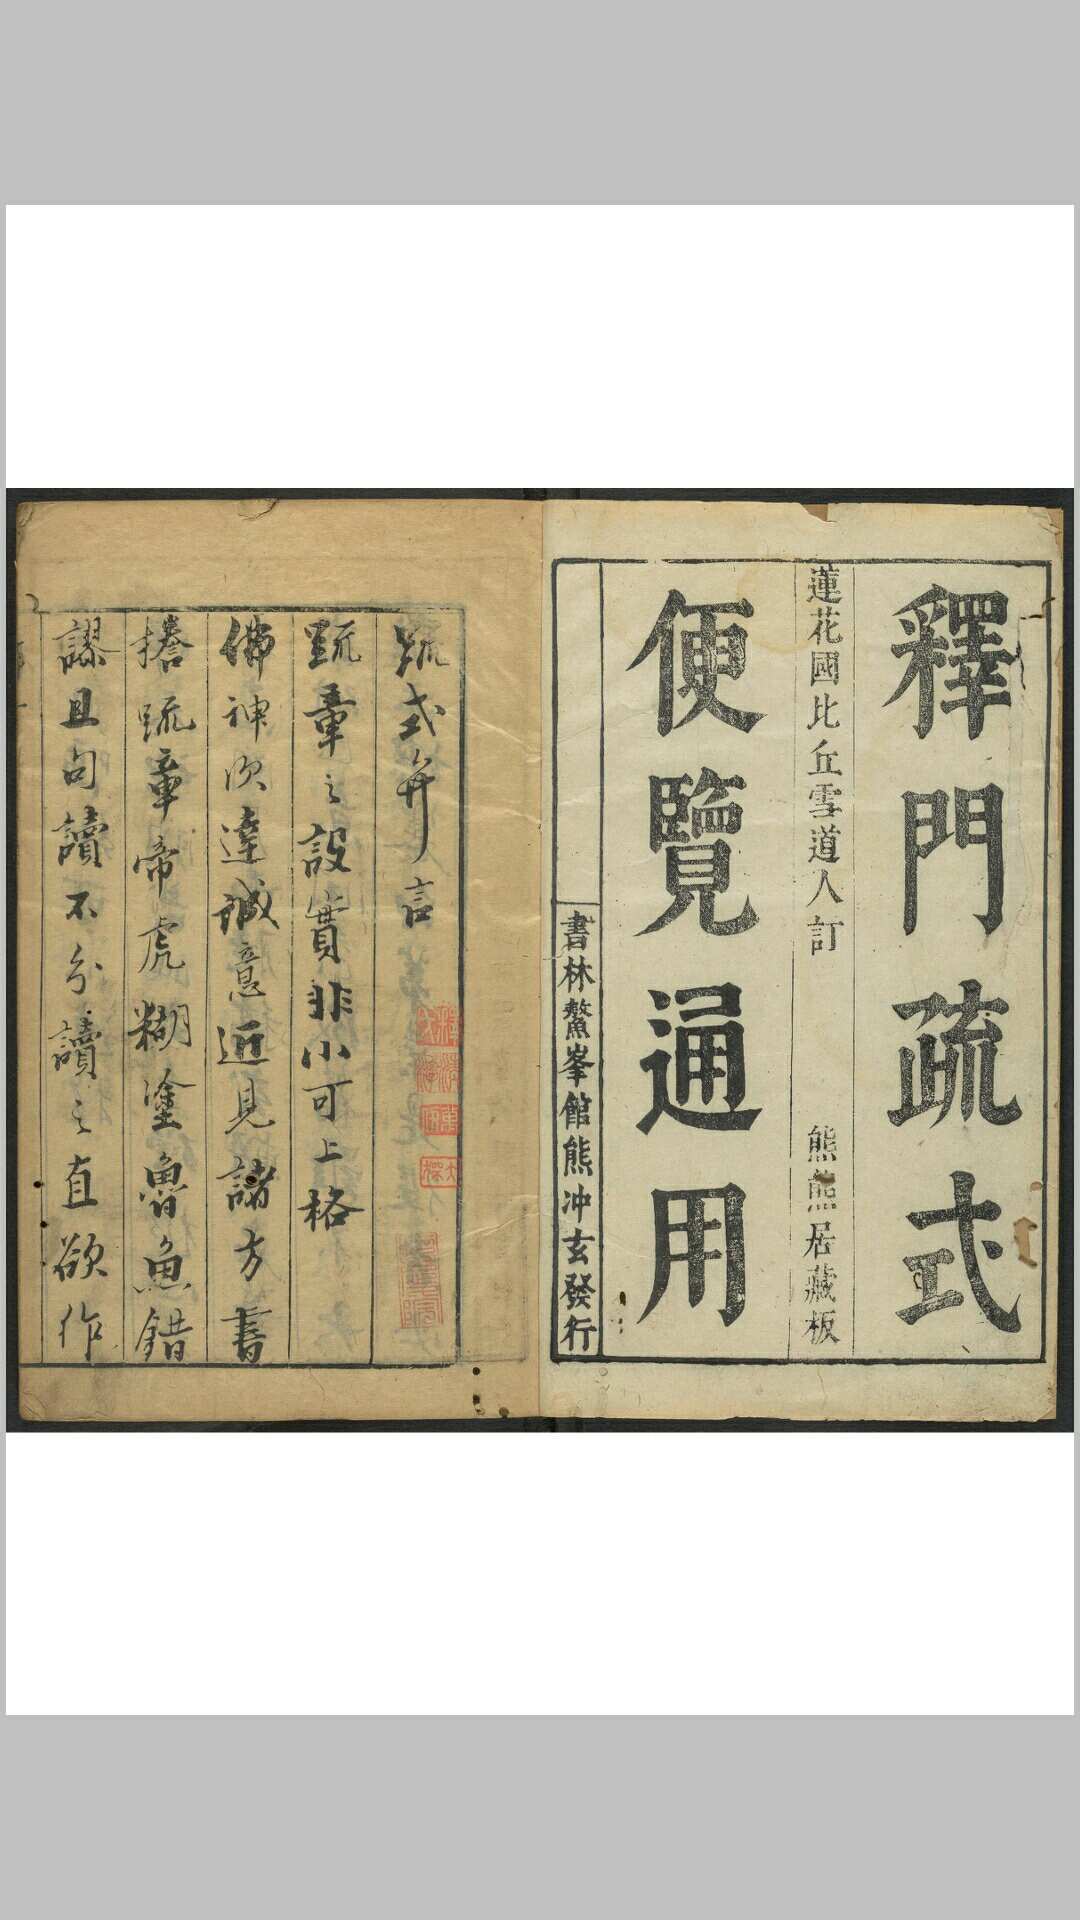 釋門疏式
蓮花國比丘雪道人訂
熊熊居藏板
便覽通用
書林鰲峯館熊冲玄發行
疏式弁言
疏章之設實非小可上格
佛神次達誠意近見諸方書
搭疏章帝虎糊塗魯魚錯
謬且句讀不分讀之直欲作